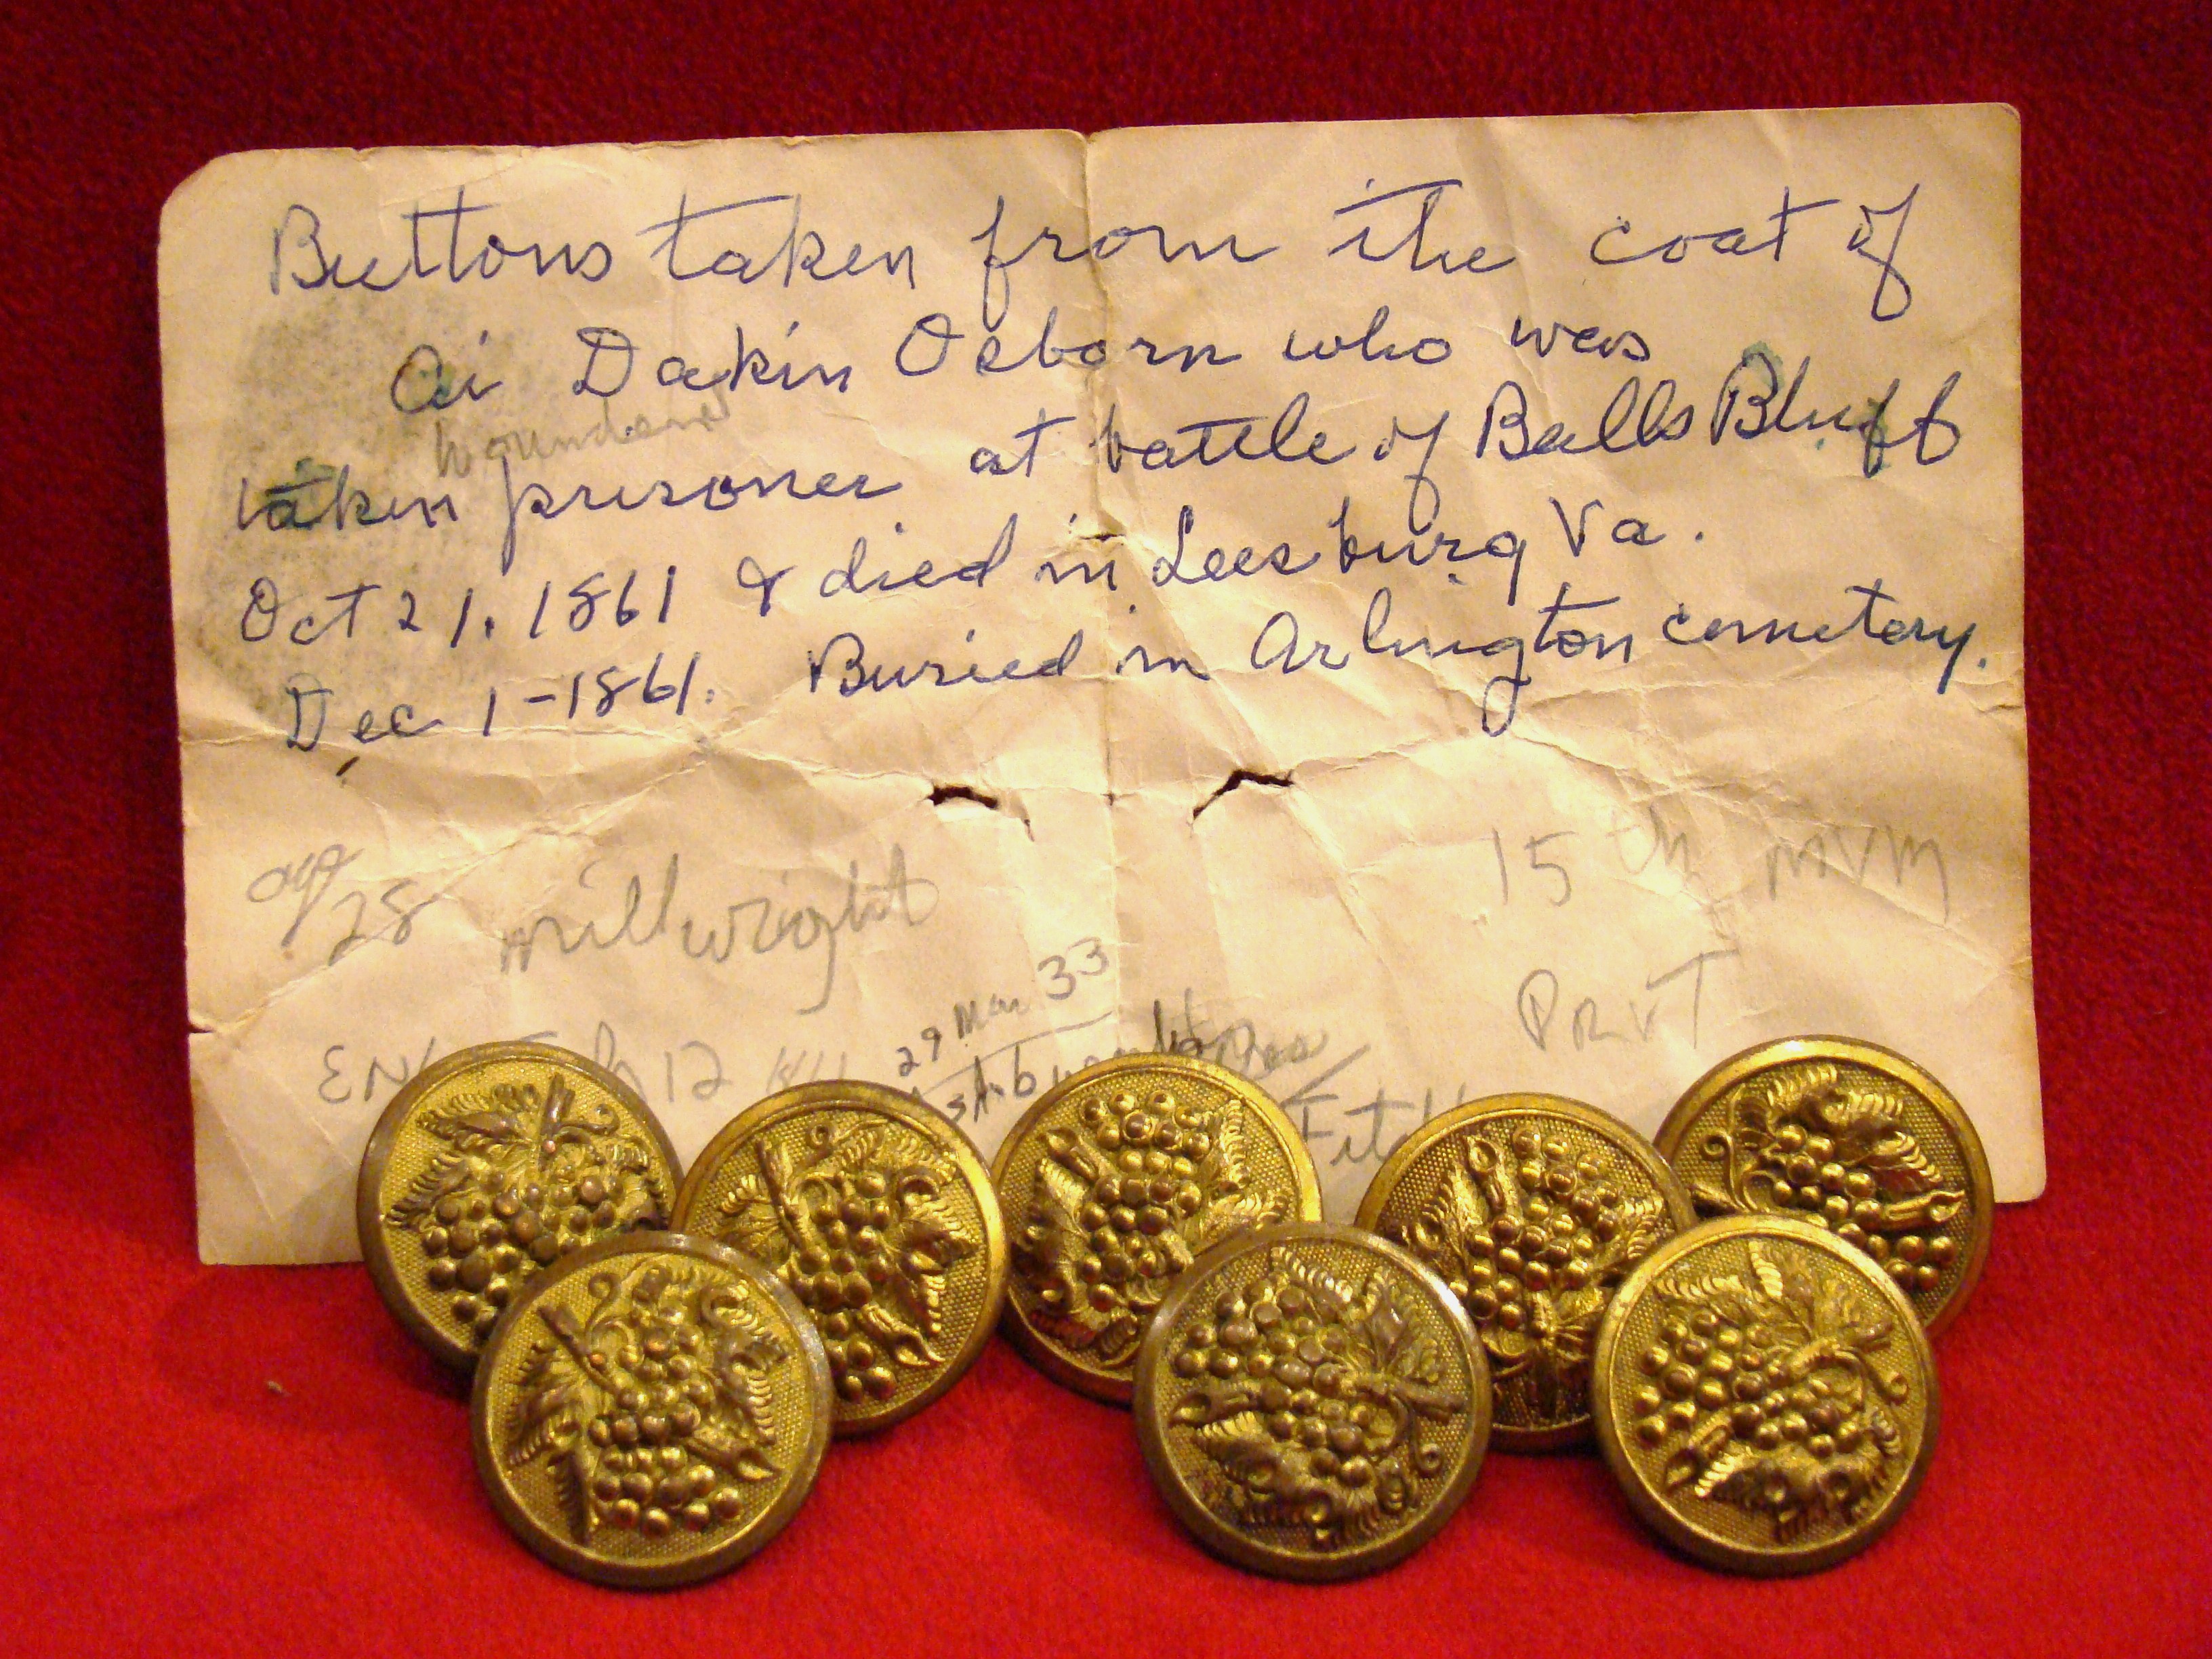 Buttons taken from the coat of
Ai Dakin Osborn who was
wounded
taken prisoner at battle of Balls Bluff
Oct 21. 1861 & died in Leesburg Va.
Dec 1-1861. Buried in Arlington cemetery.
age 28 millwright 15th MVM
29 Mar 33
PRVT
12